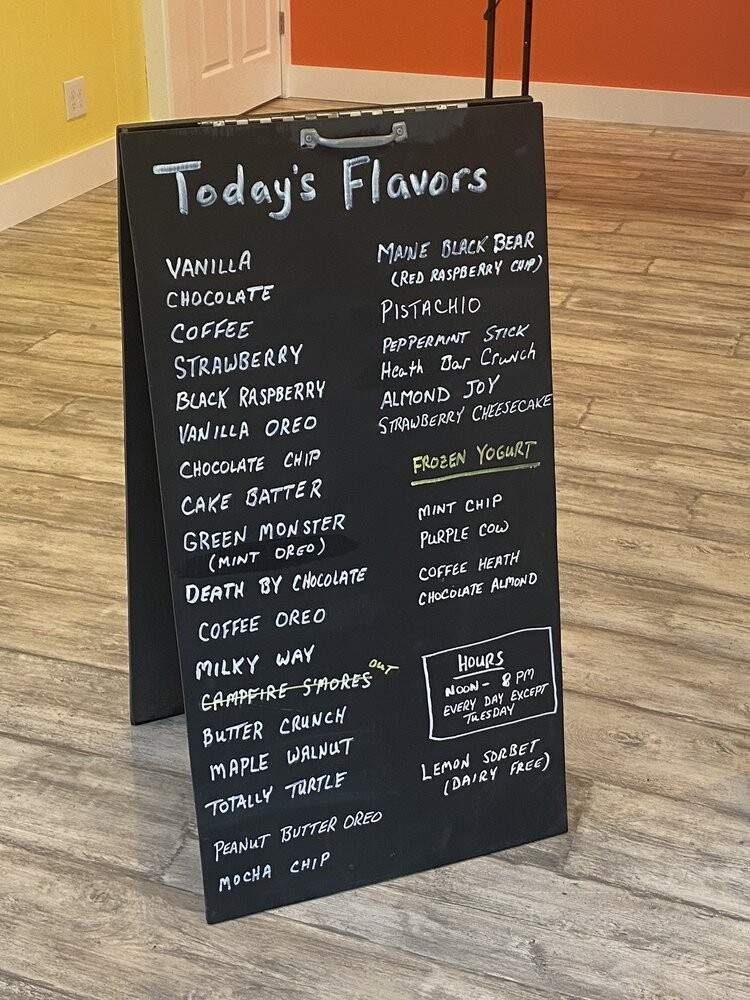 Today's Flavors
VANILLA
CHOCOLATE
COFFEE
STRAWBERRY
BLACK RASPBERRY
VANILLA OREO
CHOCOLATE CHIP
CAKE BATTER
GREEN MONSTER
(MINT OREO)
DEATH BY CHOCOLATE
COFFEE OREO
MILKY WAY
CAMPFIRE S'MORES OUT
BUTTER CRUNCH
MAPLE WALNUT
TOTALLY TURTLE
PEANUT BUTTER OREO
MOCHA CHIP
MAINE BLACK BEAR
(RED RASPBERRY CHIP)
PISTACHIO
PEPPERMINT STICK
Heath Bar Crunch
ALMOND JOY
STRAWBERRY CHEESECAKE
FROZEN YOGURT
MINT CHIP
PURPLE COW
COFFEE HEATH
CHOCOLATE ALMOND
HOURS
NOON - 8 PM
EVERY DAY EXCEPT
TUESDAY
LEMON SORBET
(DAIRY FREE)